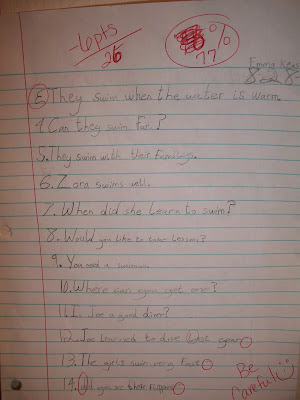 -6pts
26
%
77
Emma
8-28
3. They swim when the water is warm.
4. Can they swim far?
5. They swim with their
6. Zora swims well.
7. When did she learn to swim?
8. Would you like to take lessons?
9. You need a swimsuit.
10. Where can you get one?
11. I Joe a good diver?
12. Joe learned to dive last year
13. The girls swim very fast
14. did you see their flippers
Be
Careful!